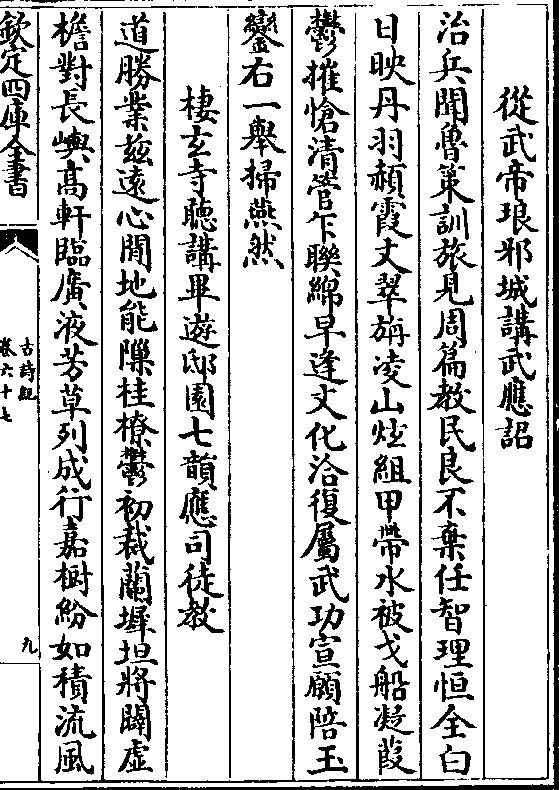 從武帝琅邪城講武應詔
治兵聞魯策訓旅見周篇教民良不棄任智理恒全白
日映丹羽赬霞文翠旃凌山炫組甲帶水被戈船凝葭
鬱摧愴清管乍聯綿早逢文化洽復屬武功宣願陪玉
鑾右一舉掃燕然
棲玄寺聽講畢遊邸園七韻應司徒教
道勝業兹遠心閒地能隟桂橑鬱初裁蘭墀坦將闢虚
檐對長嶼髙軒臨廣液芳草列成行嘉樹紛如積流風
欽定四庫全書
古詩紀
卷六十七
九